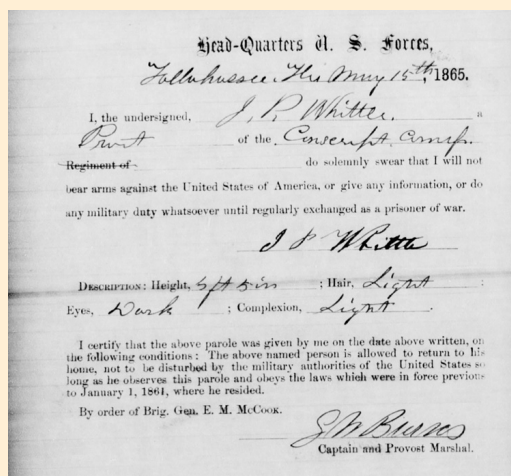 Head-Quarters U. S. Forces,
Tallahassee, Fla May 15th, 1865.
I, the undersigned, J. P. Whittle. a
Privt of the Conscript Camp.
Regiment of do solemnly swear that I will not
bear arms against the United States of America, or give any information, or do
any military duty whatsoever until regularly exchanged as a prisoner of war.
J P Whittle
DESCRIPTION: Height, 5 ft 5 in ; Hair, Light ;
Eyes, Dark ; Complexion, Light .
I certify that the above parole was given by me on the date above written, on
the following conditions: The above named person is allowed to return to his
home, not to be disturbed by the military authorities of the United States so
long as he observes this parole and obeys the laws which were in force previous
to January 1, 1861, where he resided.
By order of Brig. Gen. E. M. McCook.
Captain and Provost Marshal.